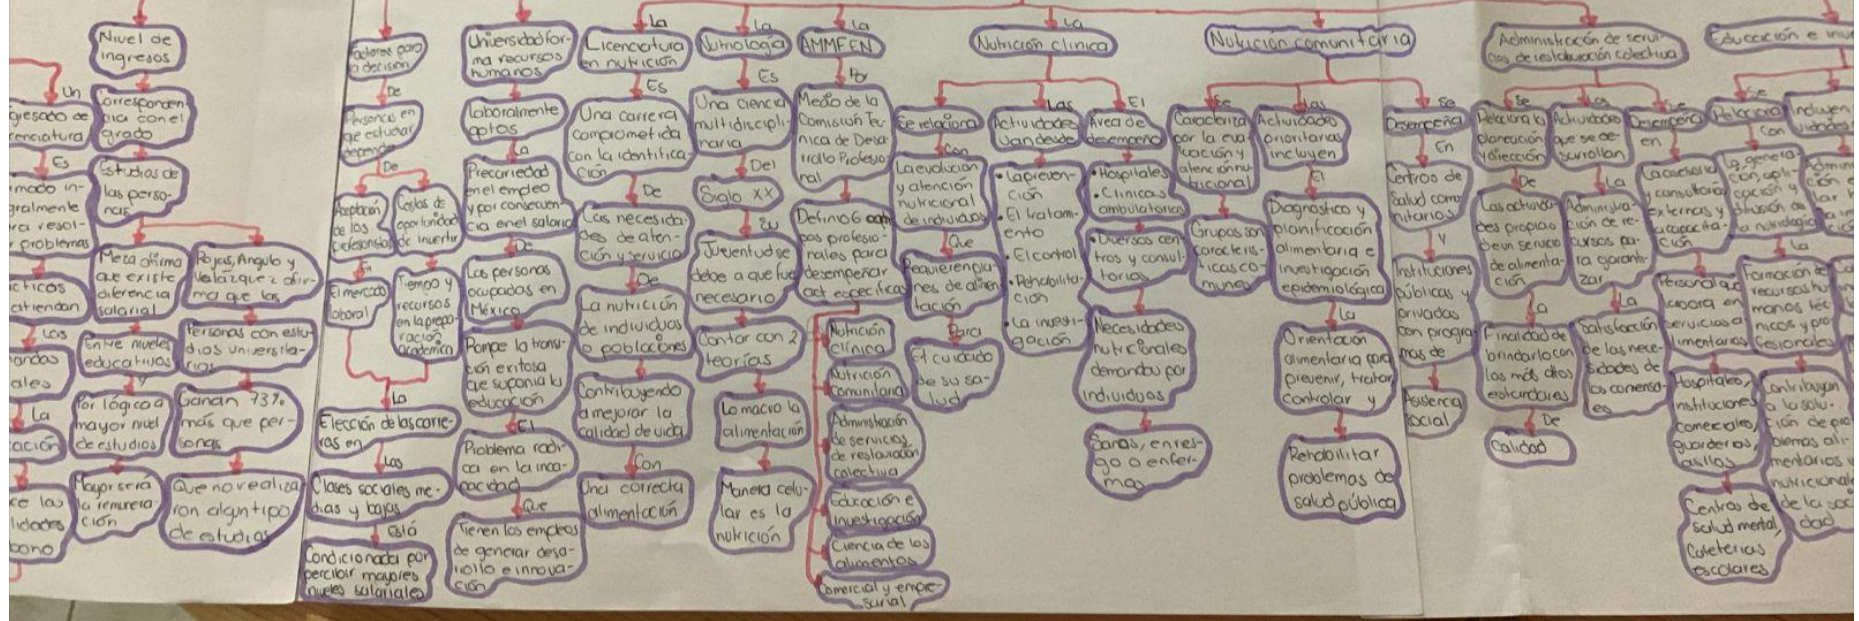 Nivel de
ingresos
Un
gresado de
cenciatura
Es
gralmente
ra resol-
r problemas
cticos
atiendan
Las
ales
La
ación
ce las
lidades
Corresponden
cia con el
grado
Estudios de
las perso-
nas
Meza afirma
que existe
diferencia
salarial
Entre niveles
educativos
Y
Por lógica a
mayor nivel
de estudios
Mayor será
la remunera-
ción
Rojas, Angulo y
Velázquez afir-
ma que las
Personas con estu-
dios universita-
rios
Ganan 73%
más que per-
sonas
Que no realiza
ron algún tipo
de estudios
Factores para
la decisión
De
Personas en
que estudiar
depende
De
Aceptación
de los
profesionistas
En
El mercado
laboral
Costos de
oportunidad
de invertir
Tiempo y
recursos
en la prepa-
ración
académica
La
Elección de las carre-
ras en
Las
Clases sociales me-
dias y bajas
Está
Condicionada por
percibir mayores
niveles salariales
Universidad for-
ma recursos
humanos
Laboralmente
aptos
La
Precariedad
en el empleo
y por consecuen
cia en el salario
De
Las personas
ocupadas en
México
Rompe la transi-
ción exitosa
que suponía la
educación
El
Problema radi-
ca en la inca-
pacidad
Que
Tienen los empleos
de generar desa-
rrollo e innova-
ción
La
Licenciatura
en nutrición
Es
Una carrera
comprometida
con la identifica-
ción
De
Las necesida-
des de aten-
ción y servicio
De
La nutrición
de individuos
o poblaciones
Contribuyendo
a mejorar la
calidad de vida
Con
Una correcta
alimentación
La
Nutriología
Es
Una ciencia
multidiscipli-
naria
Del
Siglo XX
Su
Juventud se
debe a que fue
necesario
Contar con 2
teorías
Lo macro la
alimentación
Manera celu-
lar es la
nutrición
La
AMMFEN
Por
Medio de la
Comisión Tec
nica de Desa-
rrollo Profesio-
nal
Definió 6 cam
pos profesio-
nales para
desempeñar
act específicas
Nutrición
clínica
Nutrición
comunitaria
Administración
de servicios
de restauración
colectiva
Educación e
investigación
Ciencia de los
alimentos
Comercial y empre-
sarial
La
Nutrición clínica
Se relaciona
Con
La evolución
y atención
nutricional
de individuos
Que
Requieren pla-
nes de alimen
tación
Para
El cuidado
de su sa-
lud
Las
Actividades
van desde
• La preven-
ción
• El tratam-
iento
• El control
• Rehabilita-
ción
• La investi-
gación
El
Área de
desempeño
• Hospitales
• Clínicas
ambulatorias
• Diversos cen-
tros y consul-
torios
Necesidades
nutricionales
demandas por
individuos
Sanos, en ries-
go o enfer-
mos
Nutrición comunitaria
Se
Caracteriza
por la eva-
luación y
atención nu-
tricional
Grupos son
caracterís-
ticas co-
munes
Las
Actividades
prioritarias
incluyen
El
Diagnóstico y
planificación
alimentaria e
investigación
epidemiológica
La
Orientación
alimentaria para
prevenir, tratar,
controlar y
Rehabilitar
problemas de
salud pública
Se
Desempeña
En
Centros de
salud comu-
nitarios
Y
Instituciones
públicas y
privadas
con progra-
mas de
Asistencia
social
Administración de servi-
cios de restauración colectiva
Se
Relaciona la
planeación
y dirección
De
Las activida-
des propias
de un servicio
de alimenta-
ción
La
Finalidad de
brindarlo con
los más altos
estándares
De
Calidad
Las
Actividades
que se de-
sarrollan
La
Administra-
ción de re-
cursos pa-
ra garanti-
zar
La
Satisfacción
de las nece-
sidades de
los comensa-
les
Se
Desempeña
en
La asesoría
y consultoría
externas y
la capacita-
ción
Personal que
labora en
servicios a
limentarios
Hospitales,
instituciones
comerciales,
guarderías,
asilos
Centros de
salud mental,
cafeterías,
escolares
Educación e inv
Se
Relaciona
Con
La genera-
ción, apli-
cación y
difusión de
la nutriología
La
Formación de
recursos hu
manos téc
nicos y pro-
fesionales
Contribuyan
a la solu-
ción de pro
blemas ali-
mentarios y
nutricional
de la soc
dad
Incluyen